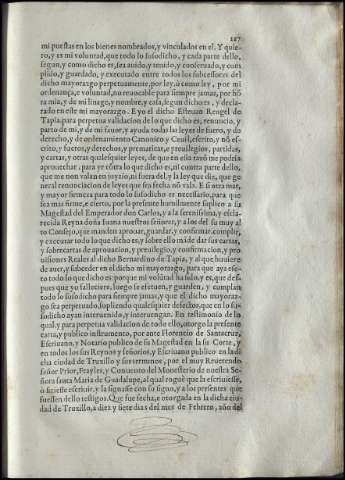 127
mi puestas en los bienes nombrados, y vinculados en el. Y quie-
ro, y es mi voluntad, que todo lo susodicho, y cada parte dello,
segun, y como dicho es, sea auido, y tenido, y conseruado, y cum
plido, y guardado, y executado entre todos los subcessores del
dicho mayorazgo perpetuamente, por ley, ò como ley, por mi
ordenança, e voluntad, no reuocable para siempre jamas, por hõ
ra mia, y de mi linage, y nombre, y casa, segun dicho es, y decla-
rado en este mi mayorazgo. E yo el dicho Esteuan Rengel de
Tapia, para perpetua validacion de lo que dicho es, renuncio, y
parto de mi, y de mi fauor, y ayuda todas las leyes de fuero, y do
derecho, y de ordenamiento Canonico y Ceuil, escrito, y nõ es-
crito, y fueros, y derechos, y prematicas, y preuilegios, partidas,
y cartas, y otras qualesquier leyes, de que en esta razõ me podría
aprouechar, para yr cõtra lo que dicho es, ni contra parte dello,
que me non valan en joyzio, ni fuera del, y la ley que diz, que ge
neral renonciacion de leyes que sea fecha nõ vala. E si otra mas,
y mayor firmeza para todo lo susodicho es necessario, para que
sea mas firme, e cierto, por la presente humilmente suplico a su
Magestad del Emperador don Carlos, y a la serenissima, y escla-
recida Reyna doña Iuana nuestros señores, y a los del su muy al
to Consejo, que manden aprouar, guardar, y confirmar, cumplir,
y executar todo lo que dicho es, y sobre ello mãde dar sus cartas,
y sobrecartas de aprouacion, y preuilegio, y confirmacion, y pro
uisiones Reales al dicho Bernardino de Tapia, y al que houiere
de auer, y subceder en el dicho mi mayorazgo, para que aya efe-
to todo lo que dicho es: porque mi voluntad ha sido, y es, que des
pues que yo fallesciere, luego se efetuen, e guarden, y cumplan
todo lo susodicho para siempre jamas, y que el dicho mayoraz-
go sea perpetuado, supliendo qualesquier defectos, que en lo su-
sodicho ayan interuenido, y interuengan. En testimonio de lo
qual, y para perpetua validacion de todo ello, otorgo la presente
carta, y publico instrumento, por ante Florencio de Santacruz,
Escriuano, y Notario publico de su Magestad en la su Corte, y
en todos los sus Reynos y señorios, y Escriuano publico en la di-
cha ciudad de Truxillo y sus terminos, por el muy Reuerendo
señor Prior, Frayles, y Conuento del Monesterio de nuestra Se-
ñora santa Maria de Guadalupe, al qual roguè que la escriuiesse,
ò fiziesse escriuir, y la signasse con su signo, y a los presentes que
fuessen dello testigos. Que fue fecha, e otorgada en la dicha ciu-
dad de Truxillo, a diez y siete dias del mes de Febrero, año del